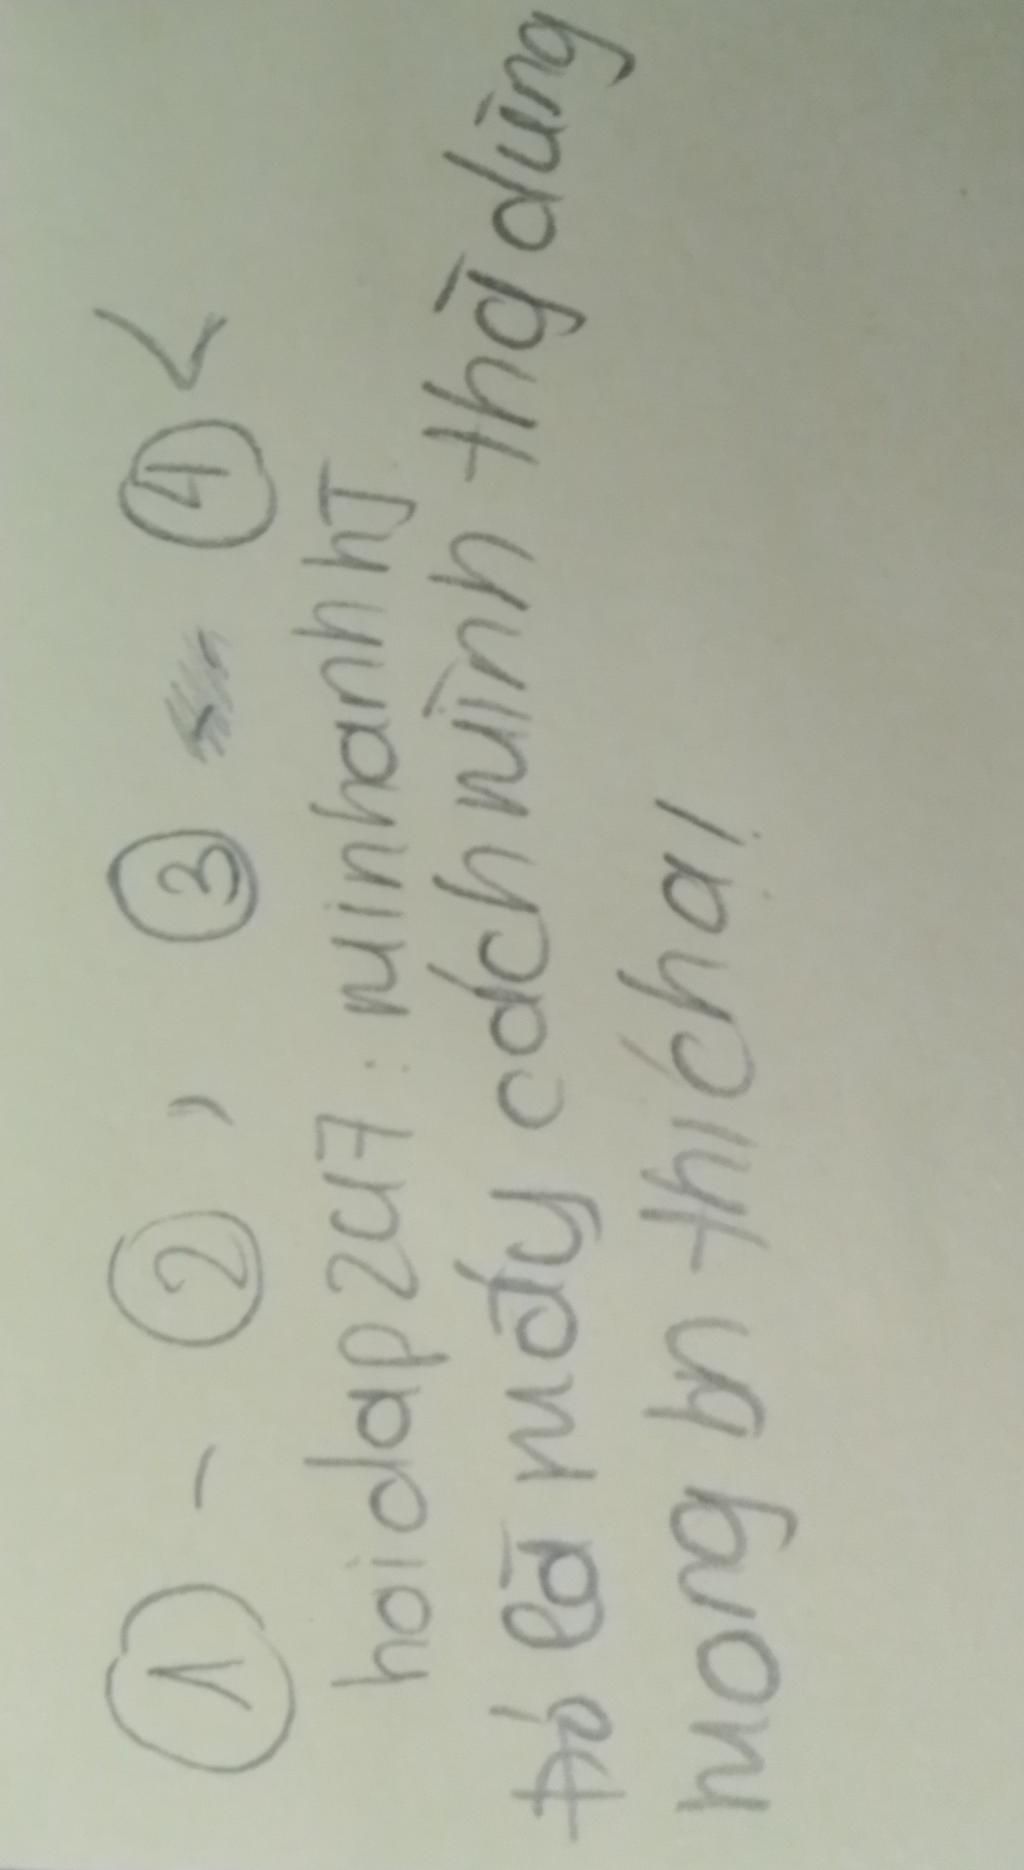 ① - ② , ③ ④ <
hoidap247: minhanhhT
Đó là mấy cách mình thg dùng
mong bn thích ạ!